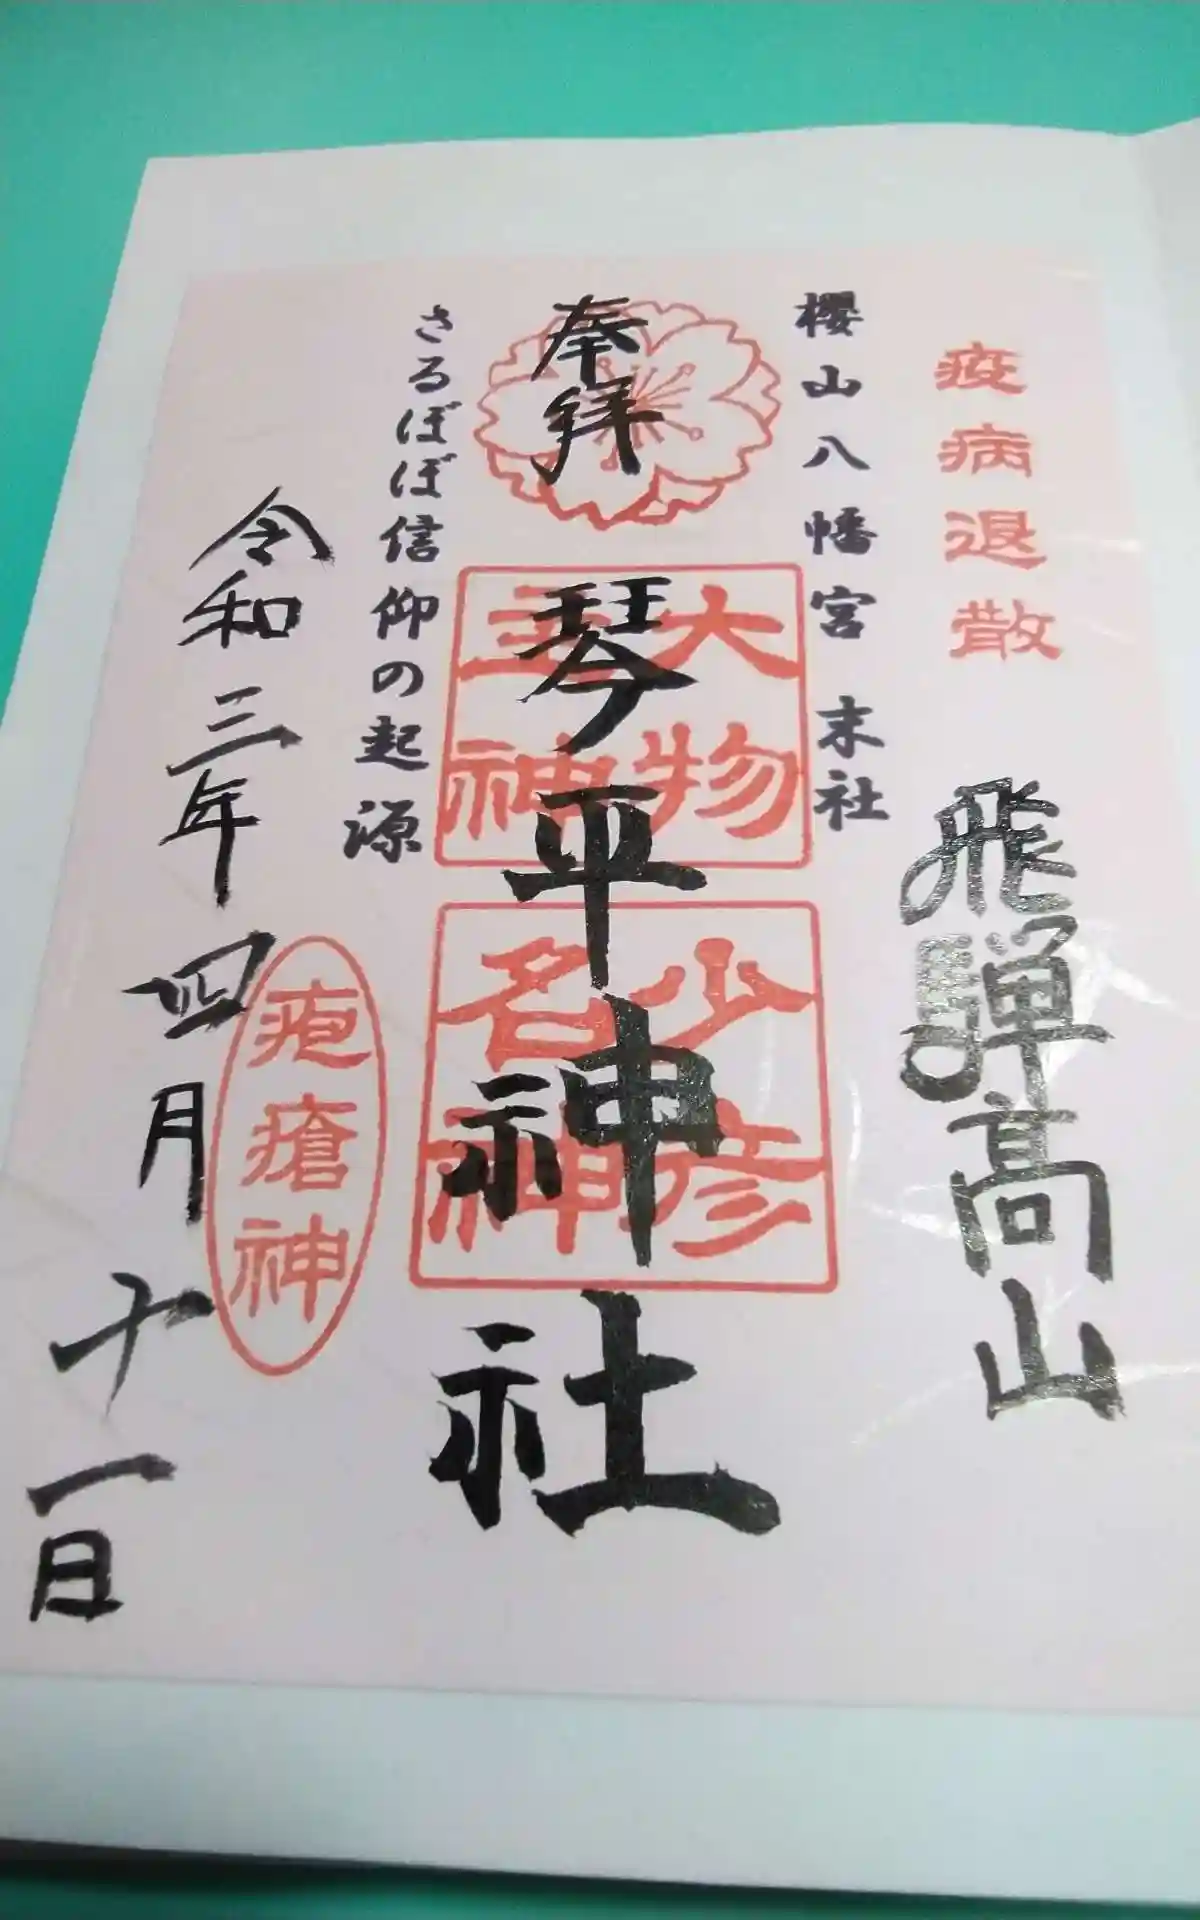 疫病退散
飛騨高山
櫻山八幡宮 末社
奉拝
琴平神社
大物主神
少彦名神
さるぼぼ信仰の起源
疱瘡神
令和三年四月十一日